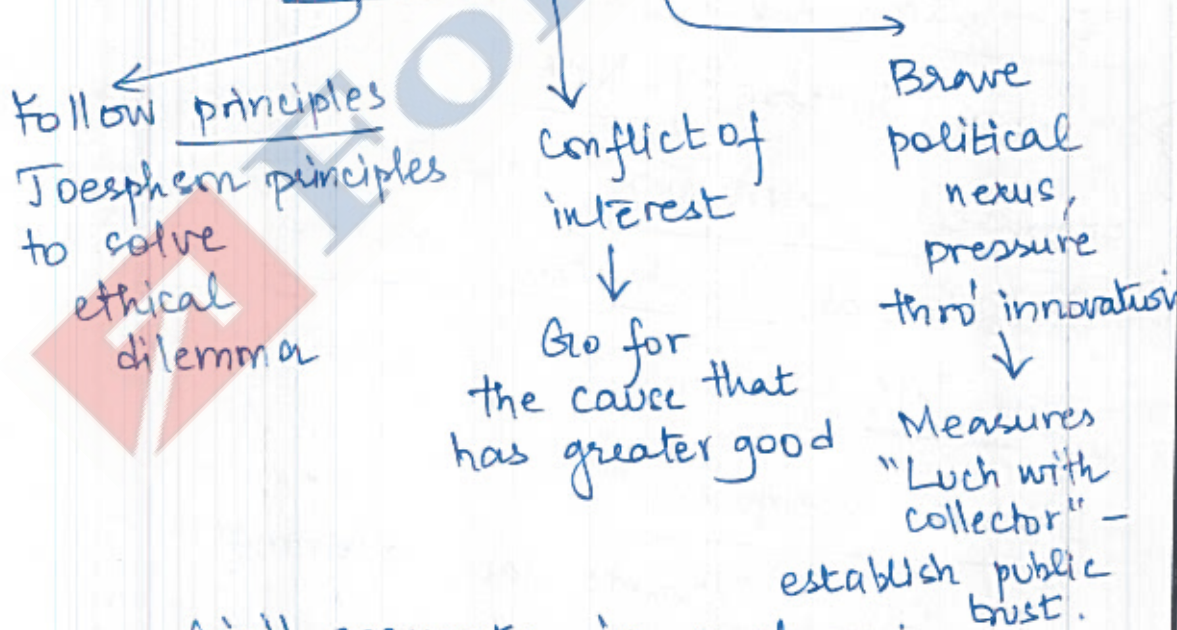 Follow principles
Joesphson principles
to solve
ethical
dilemma
Conflict of
interest
Go for
the cause that
has greater good
Brave
political
nexus,
pressure
thro' innovation
Measures
"Luch with
collector" –
establish public
trust.